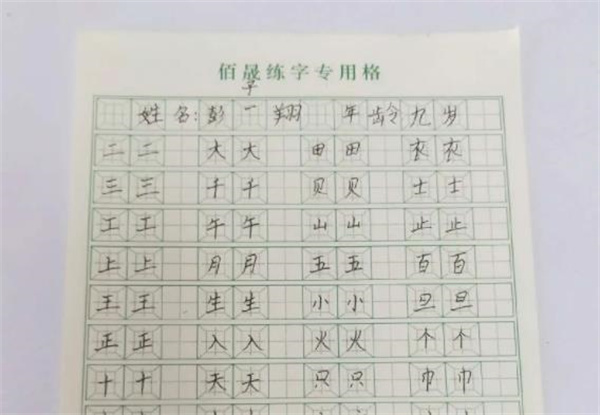 佰晟练字专用格
姓名:彭子一翔 年龄九岁
二二 大大 田田 衣衣
三三 千千 贝贝 士士
工工 午午 山山 止止
上上 月月 五五 百百
王王 生生 小小 旦旦
正正 入入 火火 个个
十十 天天 只只 巾巾